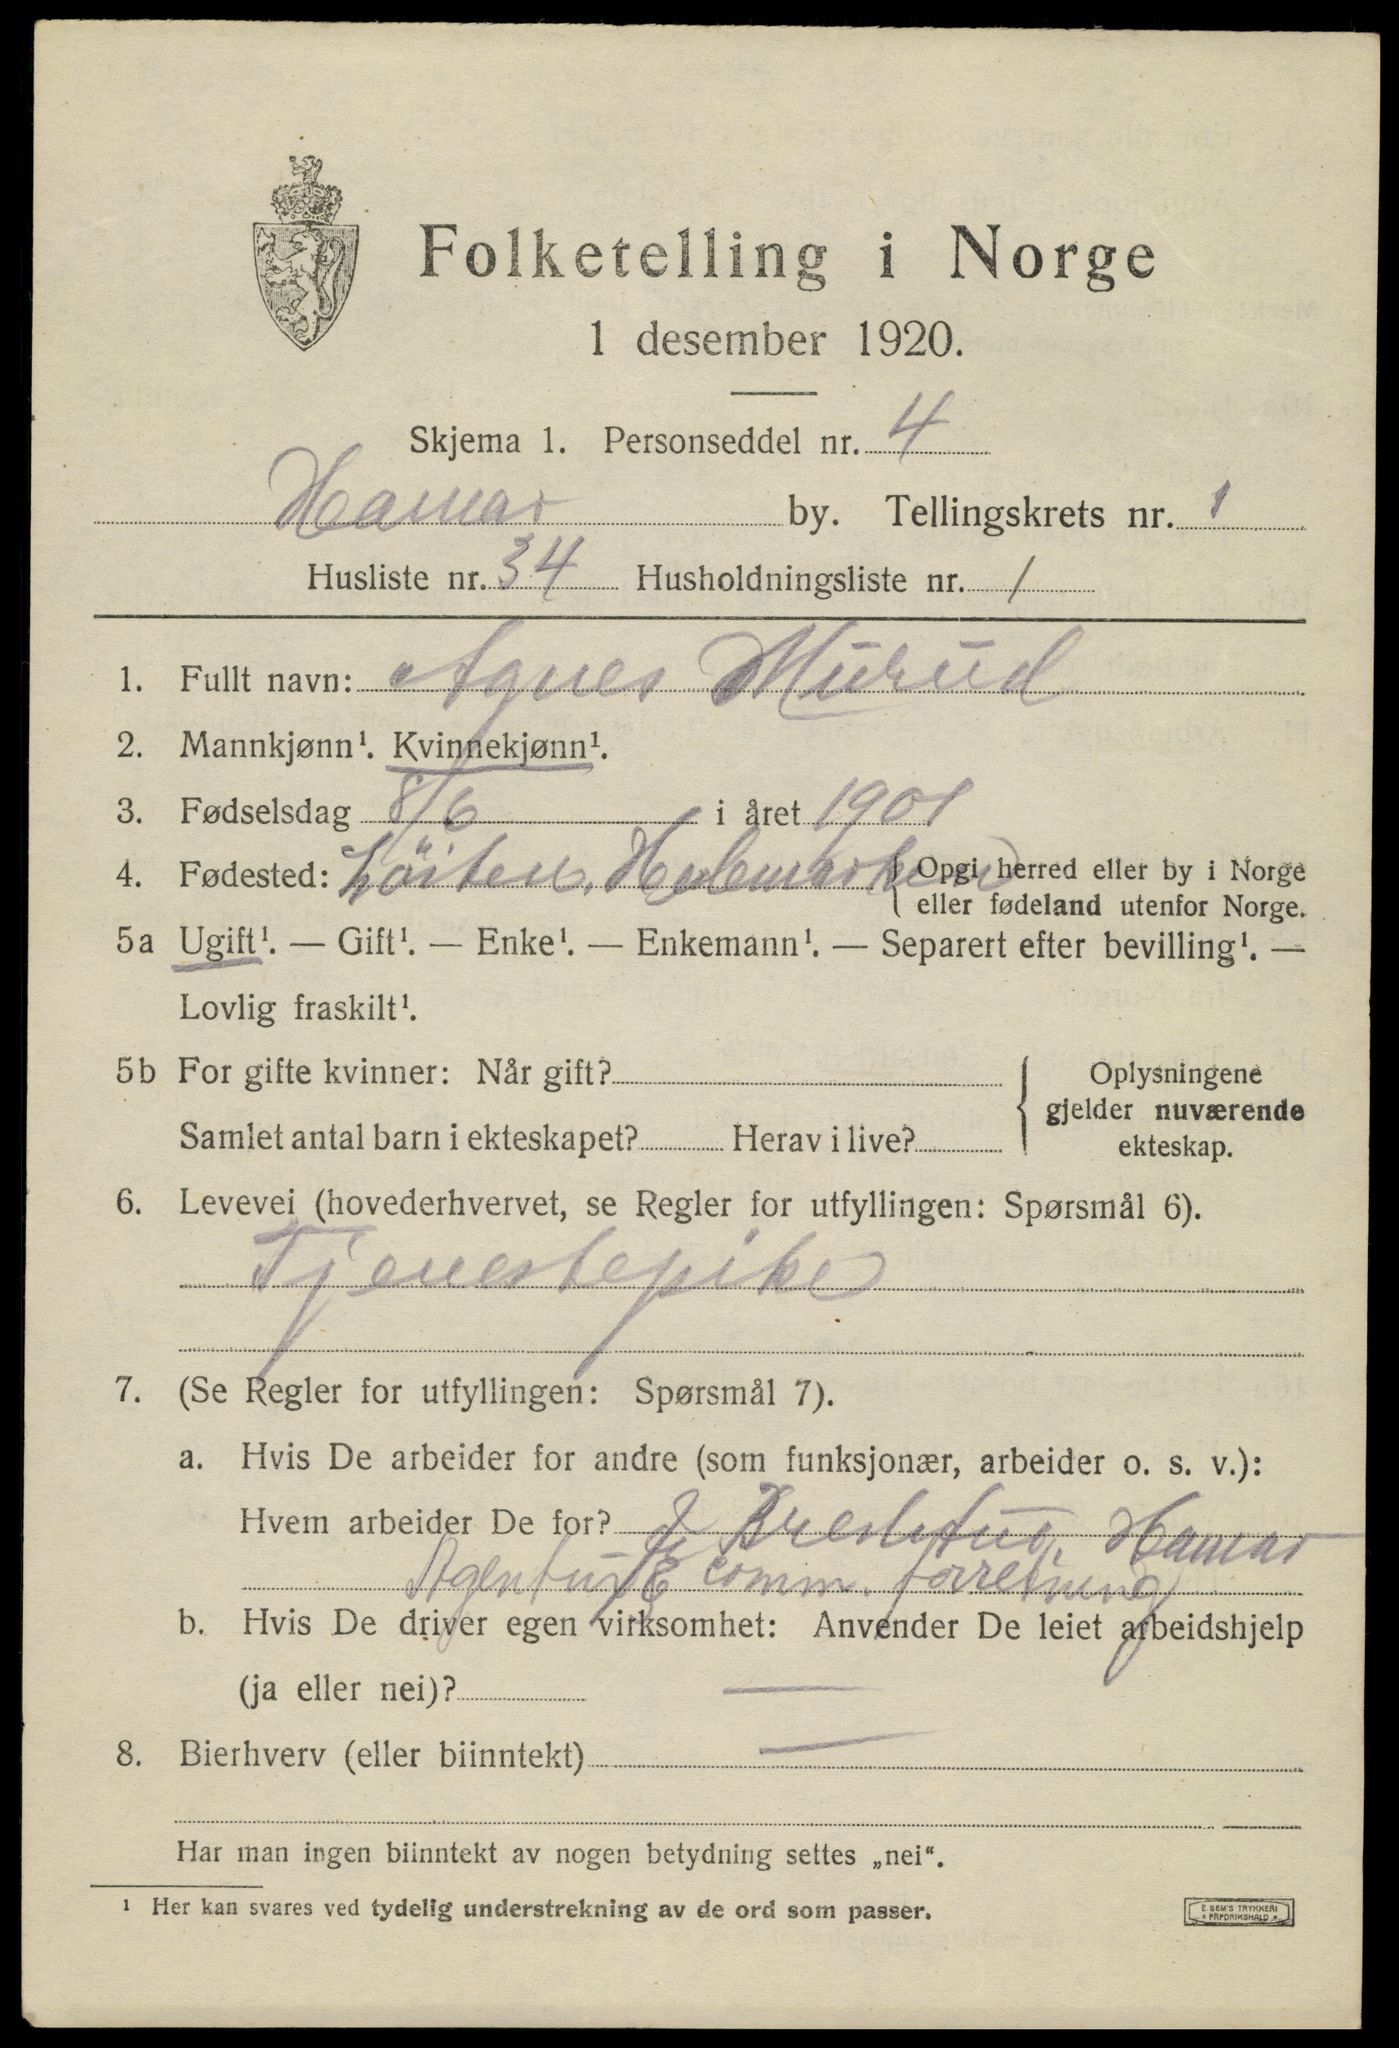 Folketelling i Norge
1 desember 1920.
Skjema 1. Personseddel nr. 4
Hamar by. Tellingskrets nr. 1
Husliste nr. 34 Husholdningsliste nr. 1
1. Fullt navn: Agnes Murud
2. Mannkjønn¹. Kvinnekjønn¹.
3. Fødselsdag 8/6 i året 1901
4. Fødested: Löiten, Hedemarken { Opgi herred eller by i Norge
eller fødeland utenfor Norge.
5a Ugift¹. — Gift¹. — Enke¹. — Enkemann¹. — Separert efter bevilling¹. —
Lovlig fraskilt¹.
5b For gifte kvinner: Når gift? { Oplysningene
gjelder nuværende
Samlet antal barn i ekteskapet? Herav i live? ekteskap.
6. Levevei (hovederhvervet, se Regler for utfyllingen: Spørsmål 6).
Tjenestepike
7. (Se Regler for utfyllingen: Spørsmål 7).
a. Hvis De arbeider for andre (som funksjonær, arbeider o. s. v.):
Hvem arbeider De for? Hamar
Agentur & comm. forretning
b. Hvis De driver egen virksomhet: Anvender De leiet arbeidshjelp
(ja eller nei)? —
8. Bierhverv (eller biinntekt) —
Har man ingen biinntekt av nogen betydning settes „nei“.
¹ Her kan svares ved tydelig understrekning av de ord som passer.
E. SEM'S TRYKKERI
FREDRIKSHALD